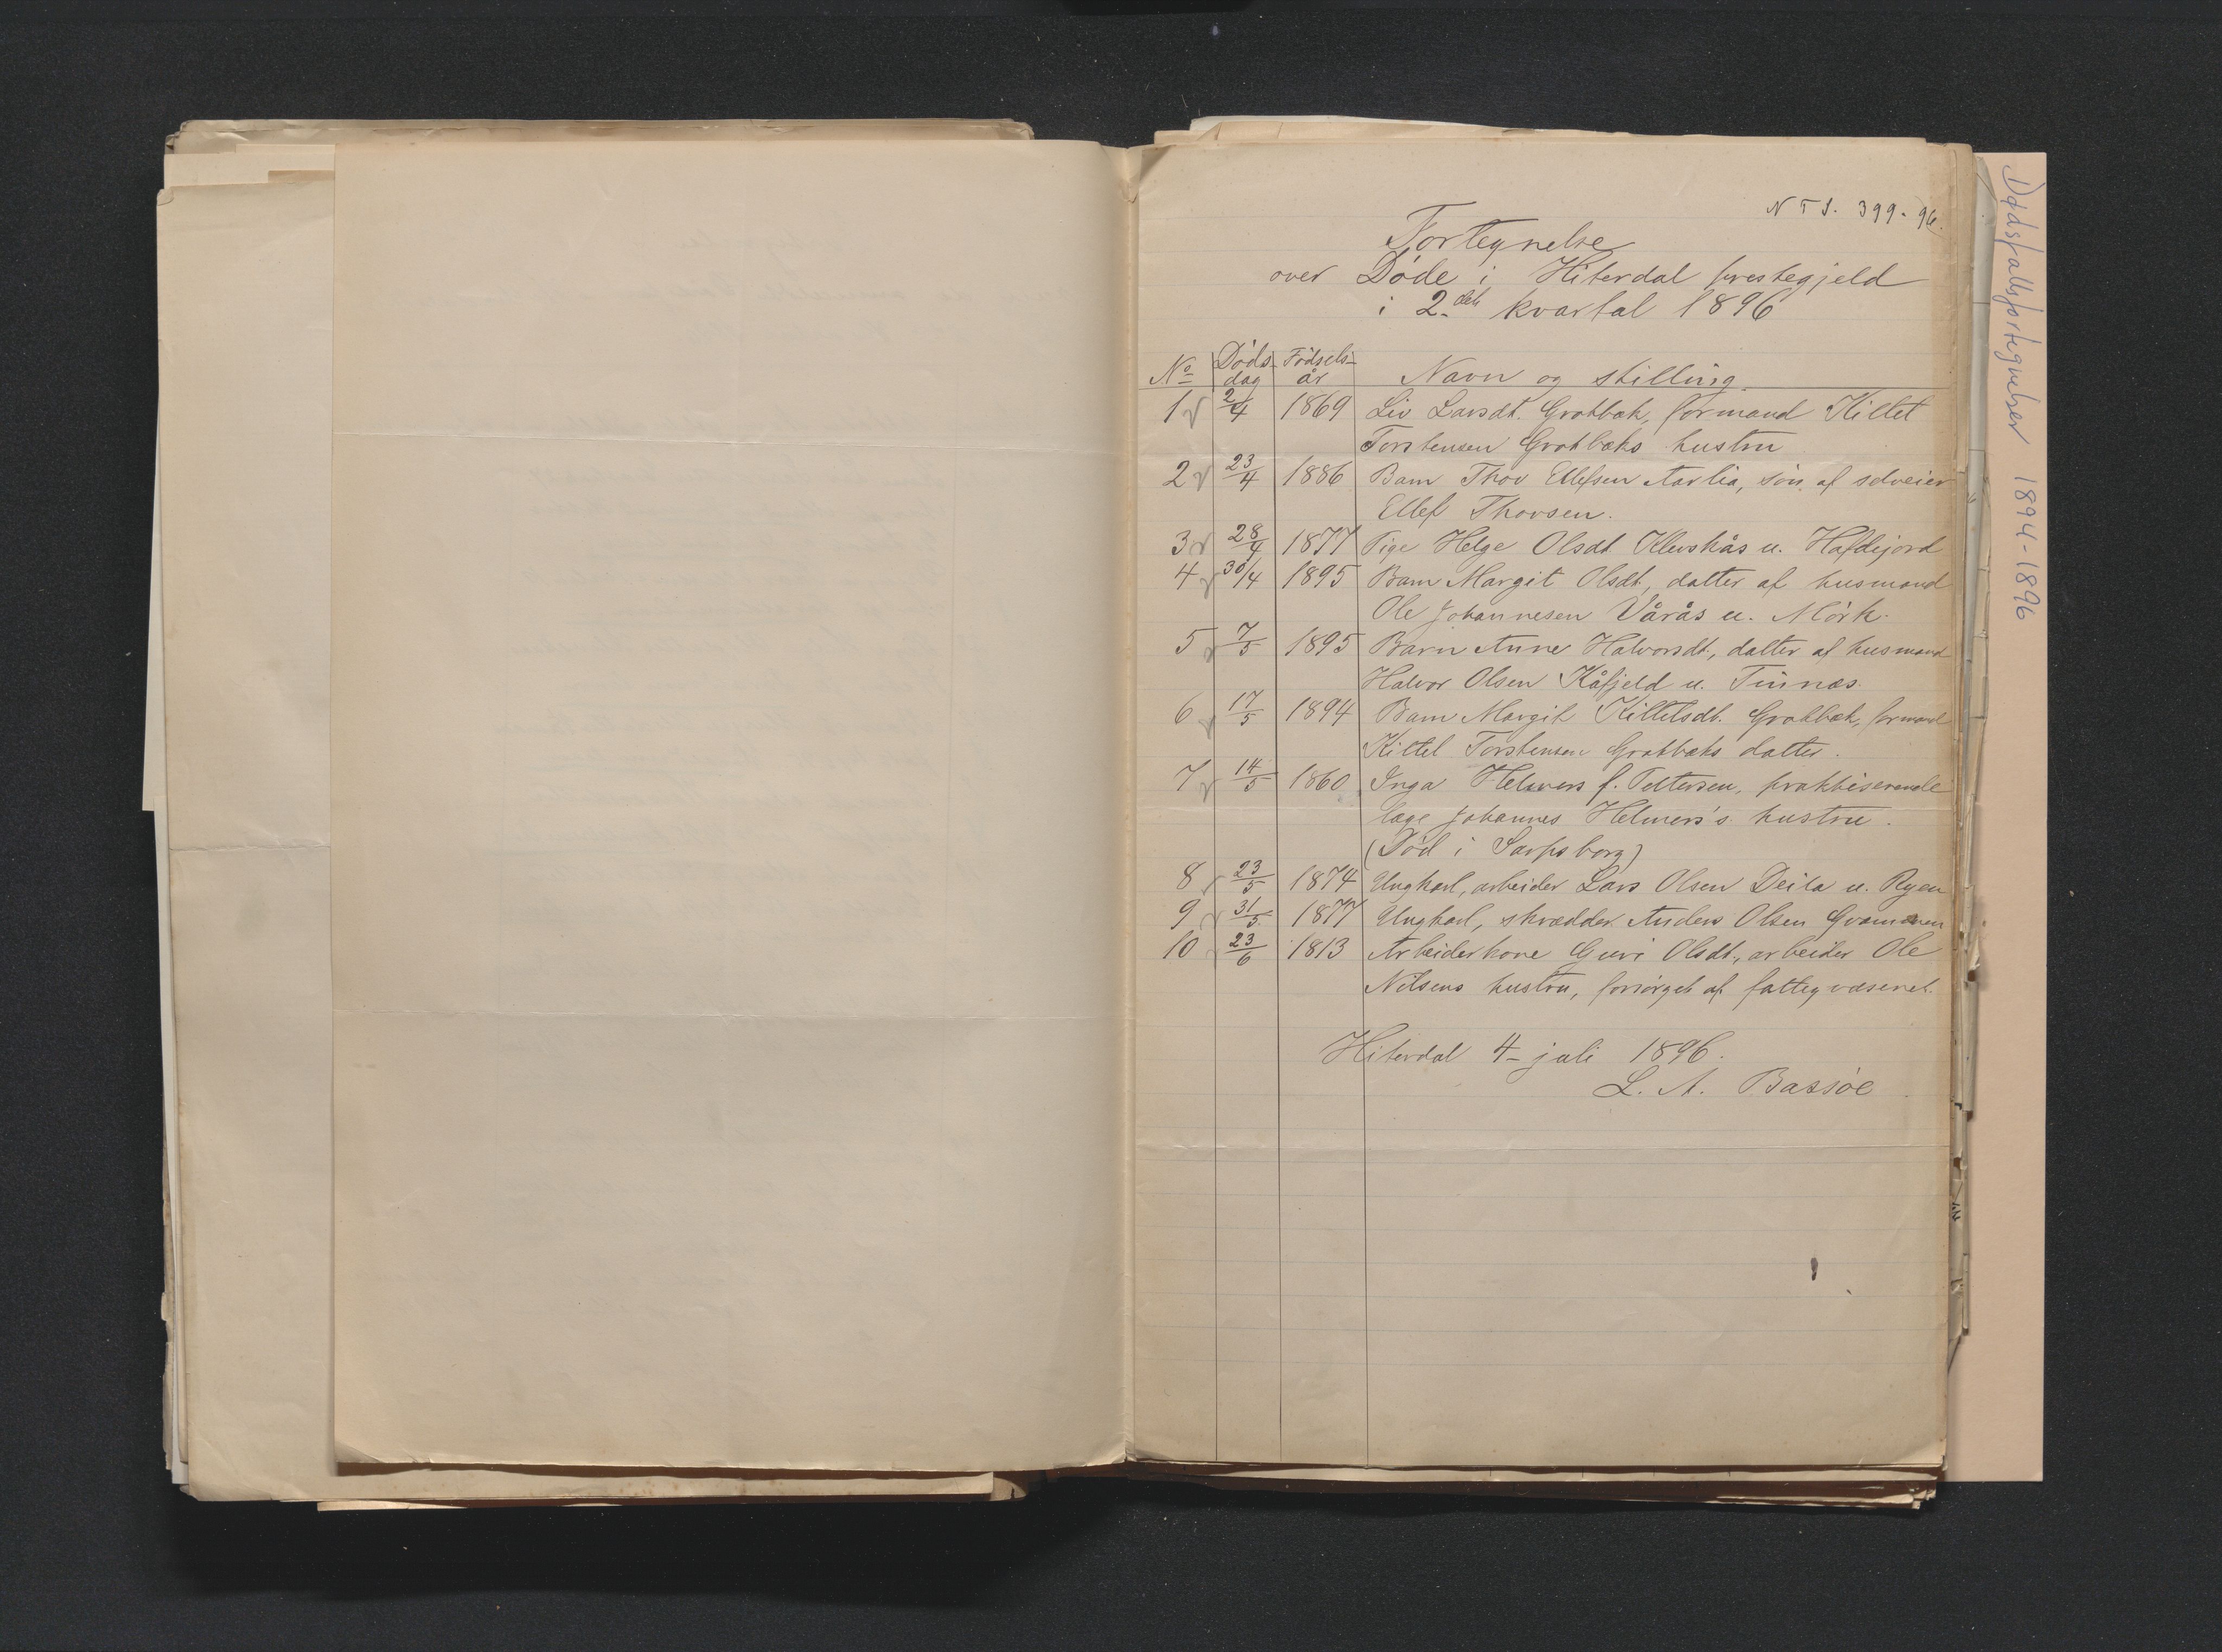 NTS. 399-96.
Fortegnelse
over Døde i Hiterdal prestegjeld
i 2det kvartal 1896
No Døds- Fødsels-
dag år Navn og stilling.
1 2/4 1869 Liv Larsdt. Grotbæk, formand Kittel
Torstensen Grotbæks hustru
2 23/4 1886 Barn Thov Ellefsen Aarlia, søn af selveier
Ellef Thovsen.
3 28/4 1877 Pige Helge Olsdt. Klevkås u. Hafdejord
4 30/4 1895 Barn Margit Olsdt, datter af husmand
Ole Johannesen Vårås u. Mørk.
5 7/5 1895 Barn Anne Halvorsdt., datter af husmand
Halvor Olsen Kåfjeld u. Tinnæs.
6 17/5 1894 Barn Margit Kittelsdt. Grotbæk, formand
Kittel Torstensen Grotbæks datter.
7 14/5 1860 Inga Helmers f. Pettersen, praktiserende
læge Johannes Helmers's hustru.
(Død i Sarpsborg)
8 23/5 1874 Ungkarl, arbeider Lars Olsen Deila u. Ryen
9 31/5 1877 Ungkarl, skrædder Anders Olsen Gvammen
10 23/6 1813 Arbeiderkone Guri Olsdt., arbeider Ole
Nilsens hustru, forsørget af fattigvæsenet.
Hiterdal 4- juli 1896.
L. A. Bassøe
Dødsfallsfortegnelser 1894-1896